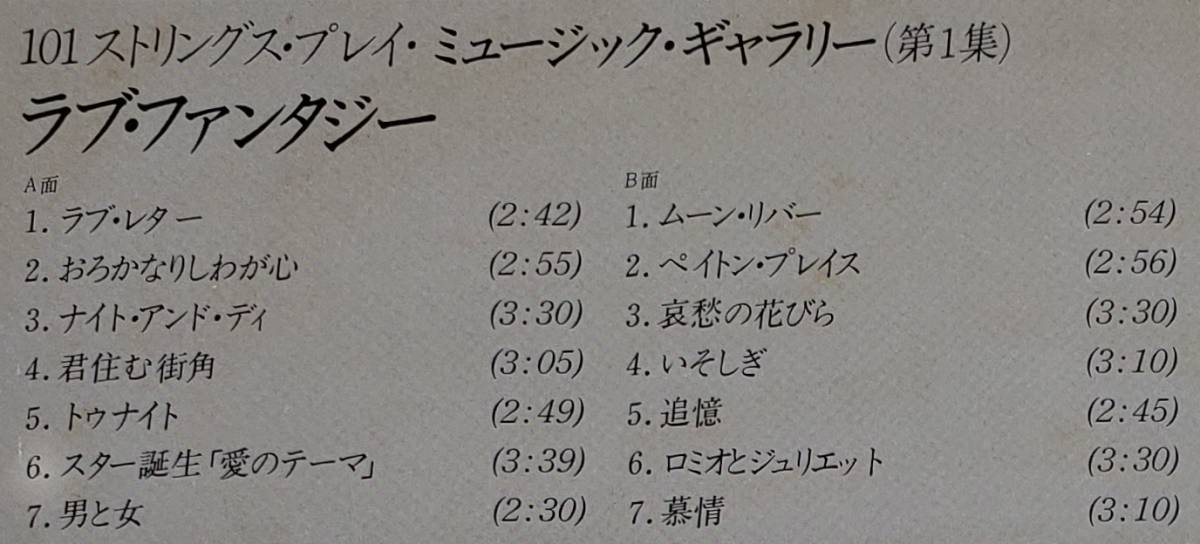 101ストリングス・プレイ・ミュージック・ギャラリー(第1集)
ラブ・ファンタジー
A面
1. ラブ・レター (2:42)
2. おろかなりしわが心 (2:55)
3. ナイト・アンド・ディ (3:30)
4. 君住む街角 (3:05)
5. トゥナイト (2:49)
6. スター誕生「愛のテーマ」 (3:39)
7. 男と女 (2:30)
B面
1. ムーン・リバー (2:54)
2. ペイトン・プレイス (2:56)
3. 哀愁の花びら (3:30)
4. いそしぎ (3:10)
5. 追憶 (2:45)
6. ロミオとジュリエット (3:30)
7. 慕情 (3:10)